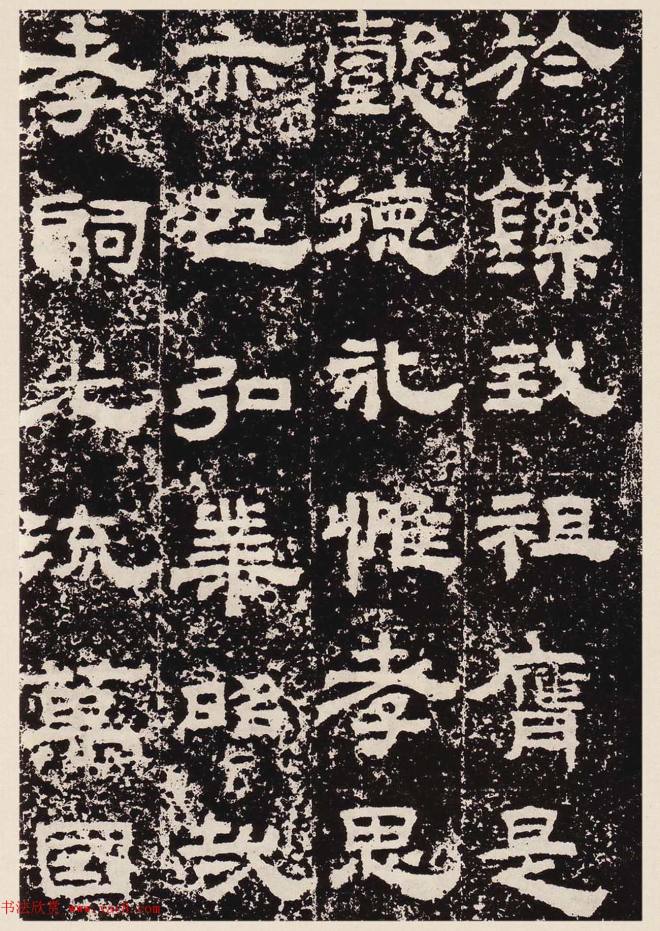 於鑠我祖膺是
懿德永惟孝思
亦世弘業昭哉
孝嗣光流萬國
书法欣赏 www.yac8.com